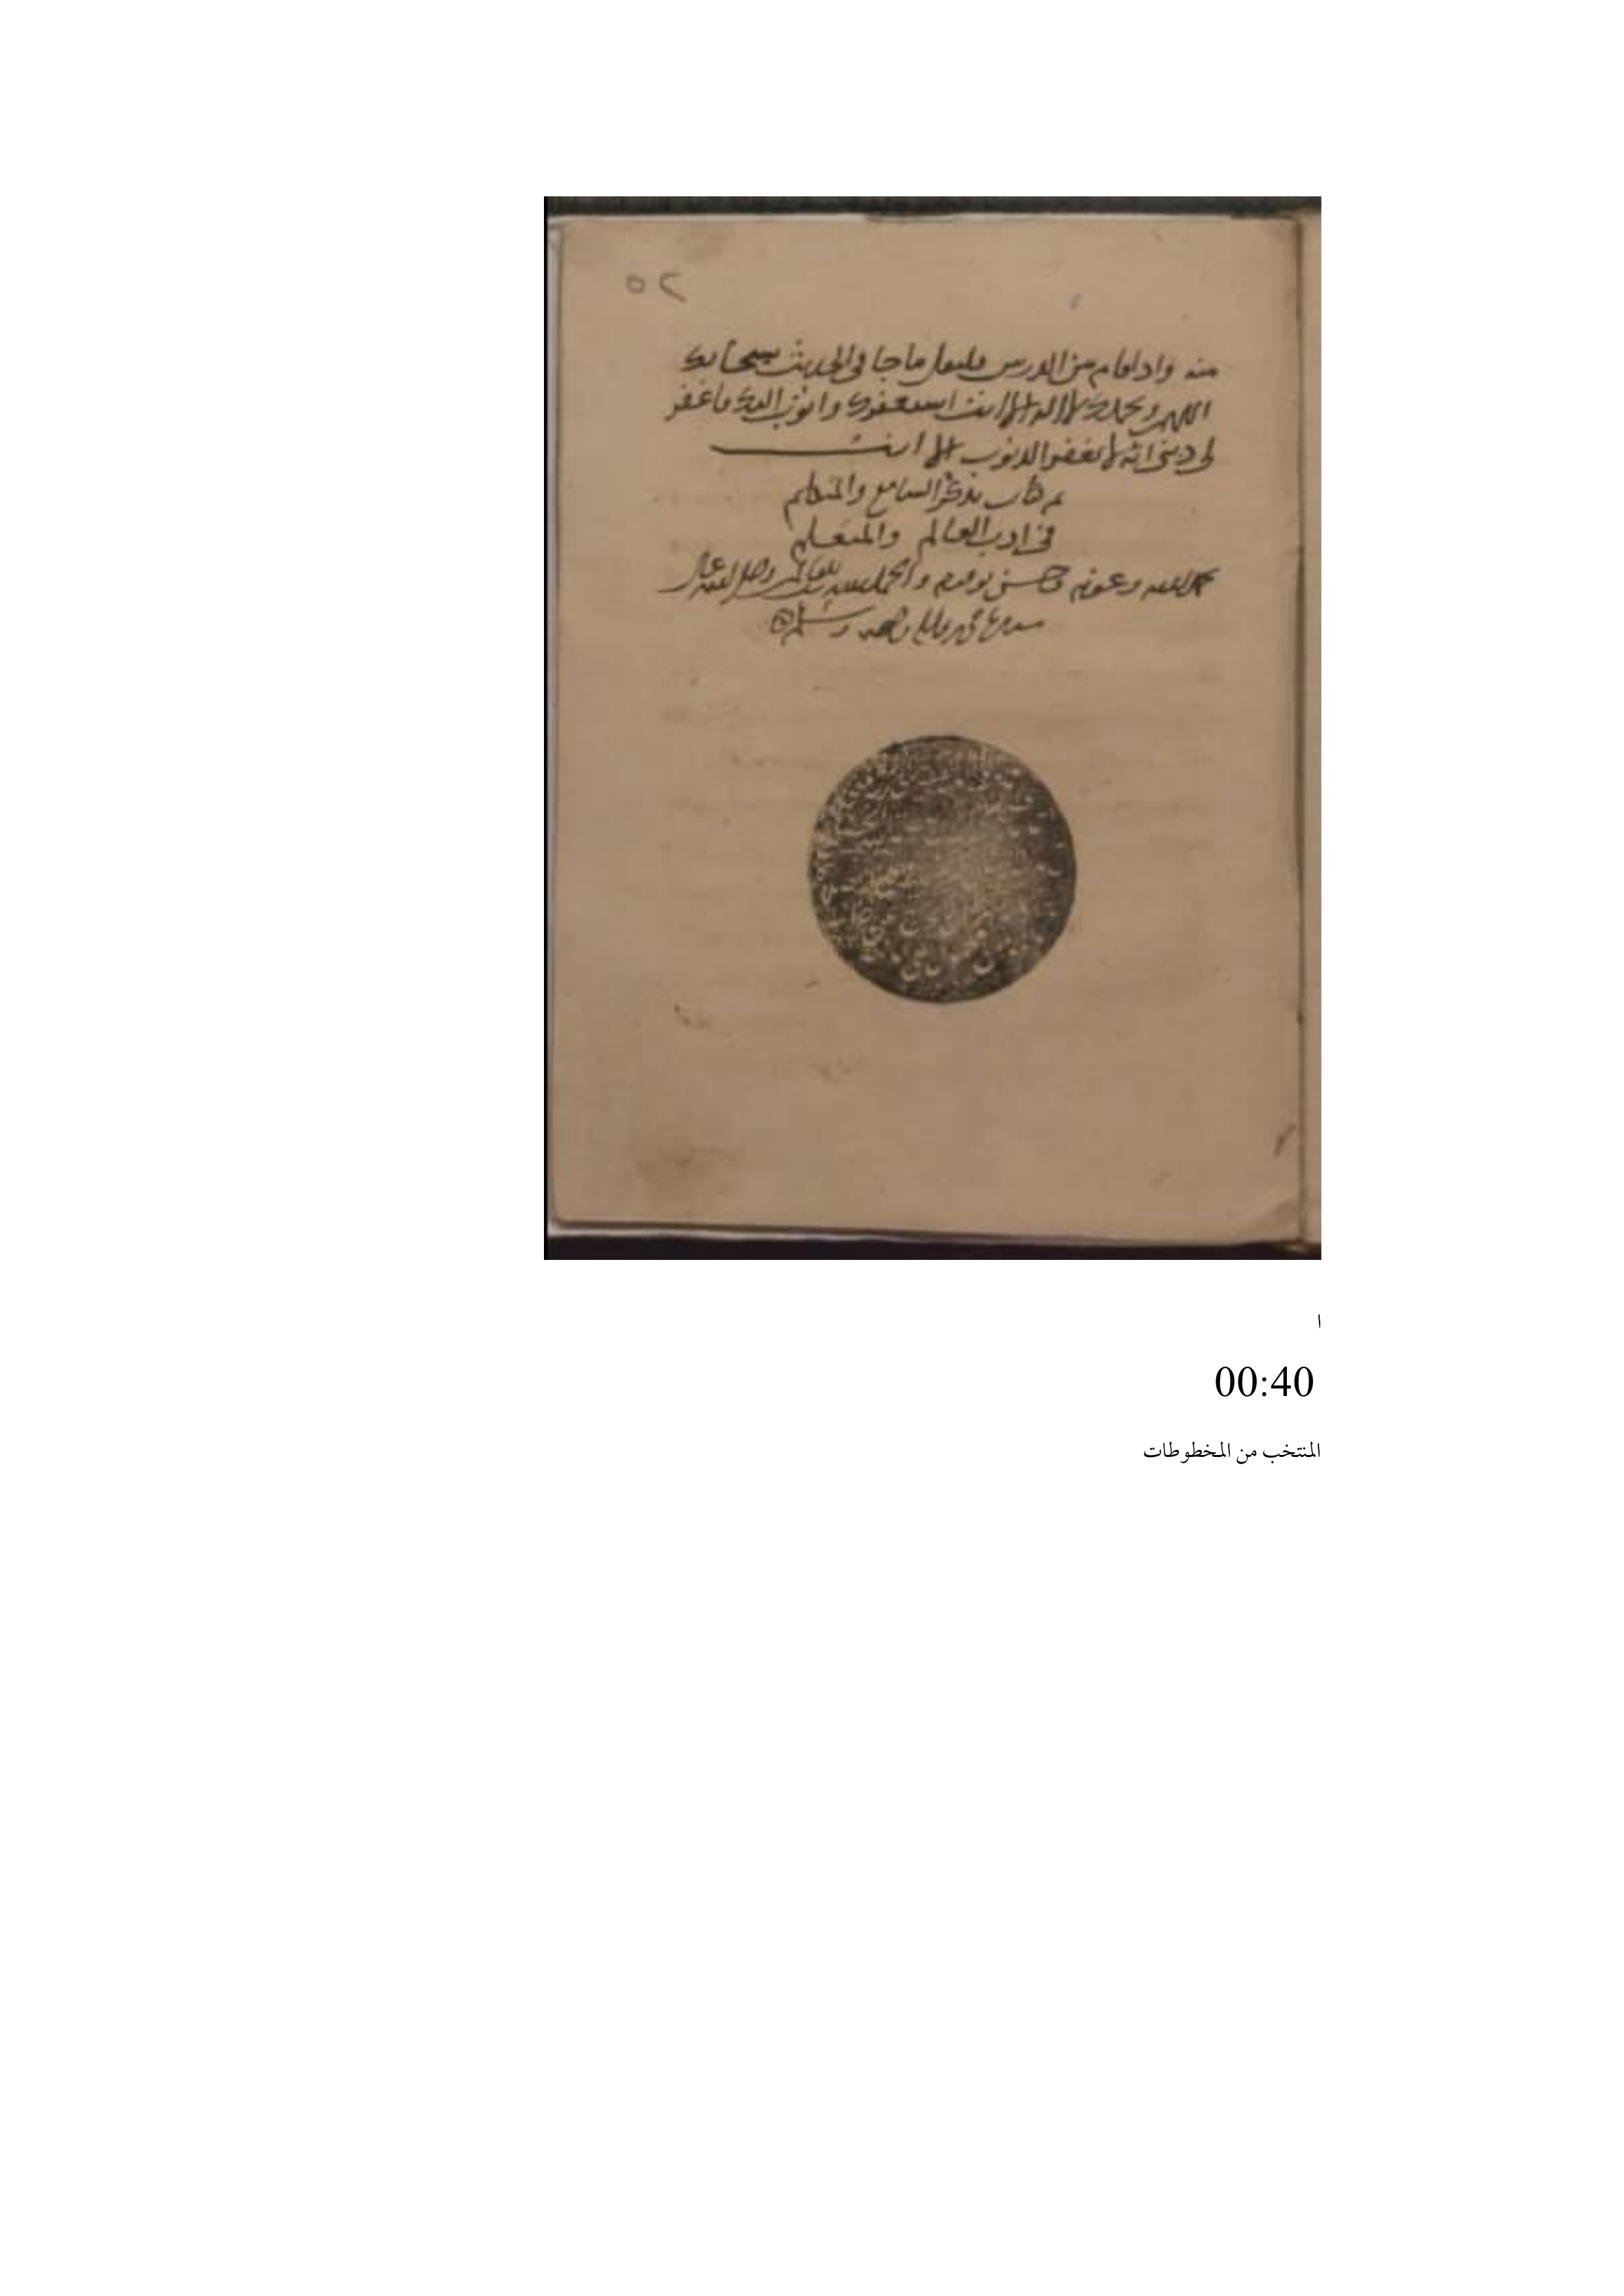 ٥٢
منه واذا قام من الدرس فليقل ما جا في الحديث سبحانك
اللهم وبحمدك لا اله الا انت استغفرك واتوب اليك فاغفر
لي ذنبي انه لا يغفر الذنوب الا انت
تم كتاب تذكرة السامع والمتكلم
في ادب العالم والمتعلم
بحمد الله وعونه وحسن توفيقه والحمد لله رب العالمين وصلى الله على
سيدنا محمد واله وصحبه وسلم
ا
00:40
المنتخب من المخطوطات